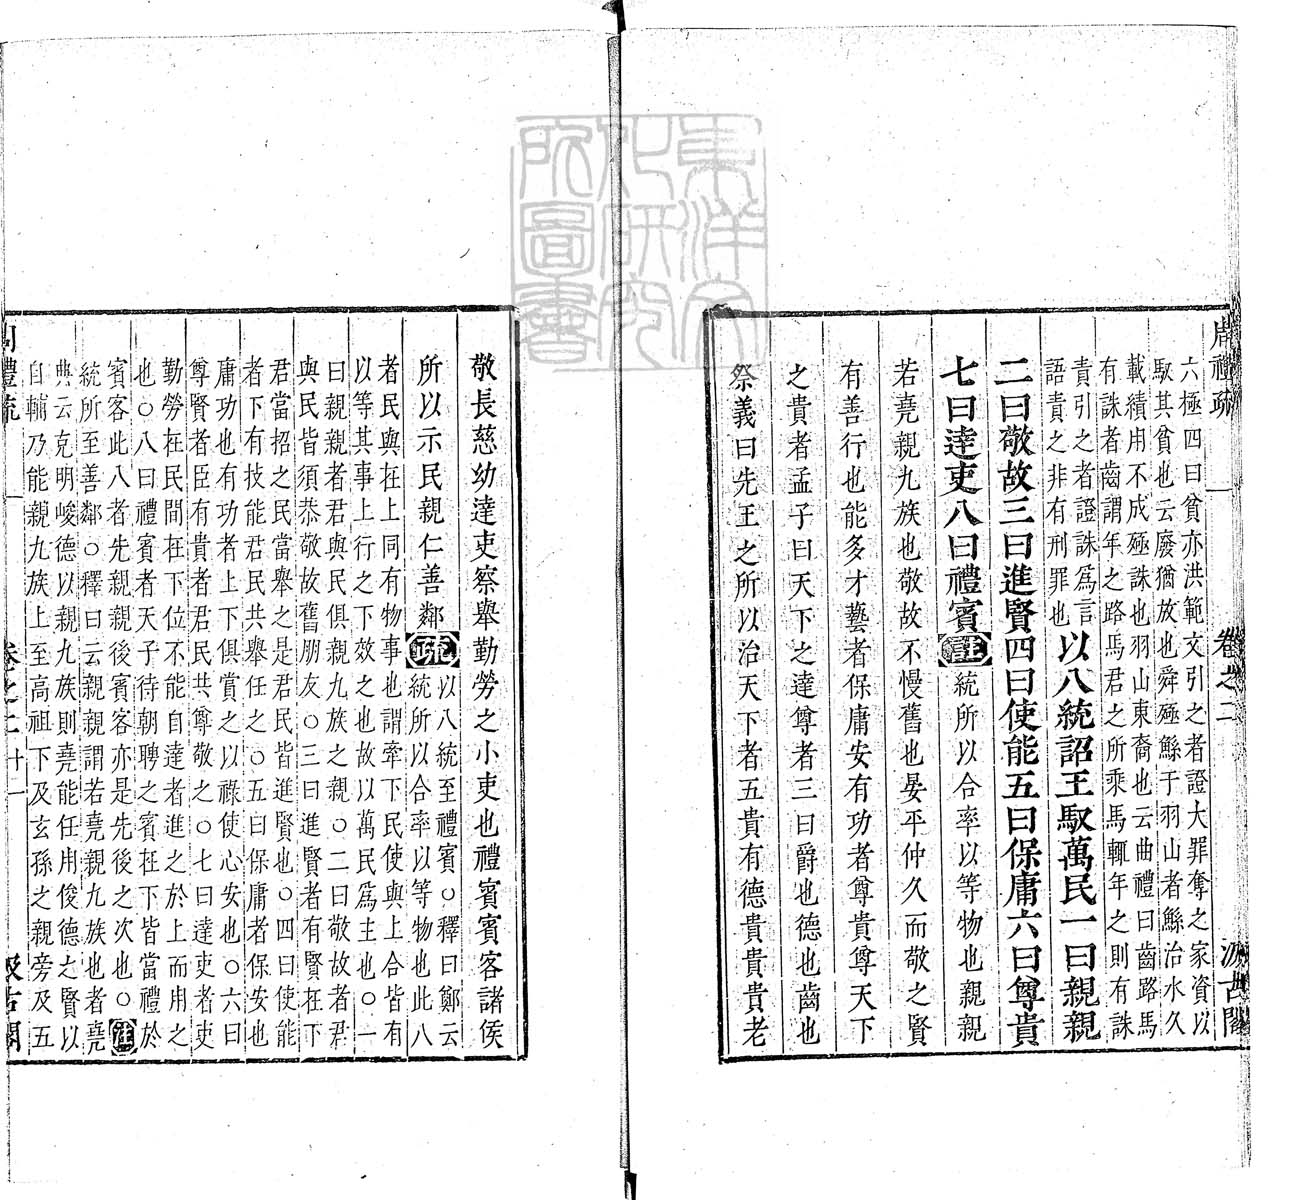 周禮疏
一
卷之二
汲古閣
六極四曰貧亦洪範文引之者證大罪奪之家資以
馭其貧也云廢猶放也舜殛鯀于羽山者鯀治水久
載績用不成殛誅也羽山東裔也云曲禮曰齒路馬
有誅者齒謂年之路馬君之所乘馬輒年之則有誅
責引之者證誅為言
語責之非有刑罪也
以八統詔王馭萬民一曰親親
二曰敬故三曰進賢四曰使能五曰保庸六曰尊貴
七曰達吏八曰禮賓注統所以合率以等物也親親
若堯親九族也敬故不慢舊也晏平仲久而敬之賢
有善行也能多才藝者保庸安有功者尊貴尊天下
之貴者孟子曰天下之達尊者三曰爵也德也齒也
祭義曰先王之所以治天下者五貴有德貴貴貴老
敬長慈幼達吏察舉勤勞之小吏也禮賓賓客諸侯
所以示民親仁善鄰疏
以八統至禮賓○釋曰鄭云
統所以合率以等物也此八
者民與在上同有物事也謂牽下民使與上合皆有
以等其事上行之下效之也故以萬民為主也○一
曰親親者君與民俱親九族之親○二曰敬故者君
與民皆須恭敬故舊朋友○三曰進賢者有賢在下
君當招之民當舉之是君民皆進賢也○四曰使能
者下有技能君民共舉任之○五曰保庸者保安也
庸功也有功者上下俱賞之以祿使心安也○六曰
尊賢者臣有貴者君民共尊敬之○七曰達吏者吏
勤勞在民間在下位不能自達者進之於上而用之
也○八曰禮賓者天子待朝聘之賓在下皆當禮於
賓客此八者先親親後賓客亦是先後之次也○注
統所至善鄰○釋曰云親親謂若堯親九族也者堯
典云克明峻德以親九族則堯能任用俊德之賢以
自輔乃能親九族上至高祖下及玄孫之親旁及五
周禮疏
一
卷之二
十一
汲古閣
東洋文
化研究
所圖書